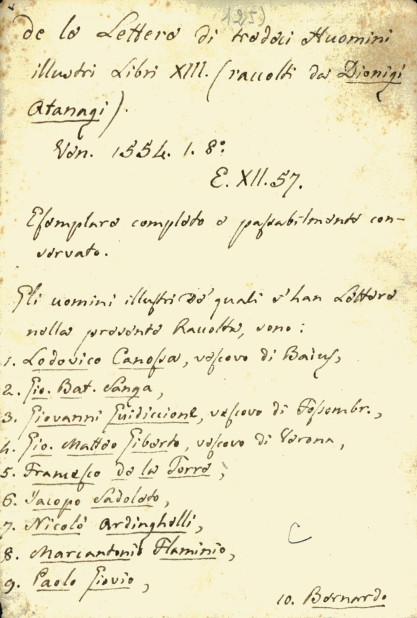 125)
de le Lettere di tredeci Huomini
illustri Libri XIII. (raccolti da Dionigi
Atanagi).
Ven. 1554. 1. 8°
E. XII. 57.
Esemplare completo e passabilmente con-
servato.
Gli uomini illustri de' quali s'han Lettere
nella presente Raccolta, sono:
1. Lodovico Canossa, vescovo di Baius,
2. Gio. Bat. Sanga,
3. Giovanni Guidiccione, vescovo di Fossembr.,
4. Gio. Matteo Giberto, vescovo di Verona,
5. Francesco de la Torre,
6. Jacopo Sadoleto,
7. Nicolò Ardinghelli,
8. Marcantonio Flaminio,
9. Paolo Giovio,
10. Bernardo